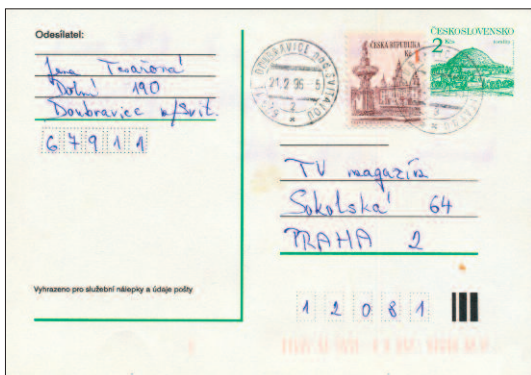 Odesílatel:
Jana Tesařová
Dolní 190
Doubravice n/Svit.
67911
Vyhrazeno pro služební nálepky a údaje pošty
ČESKÁ REPUBLIKA
Kč
ČESKOSLOVENSKO
2 Kčs
DOUBRAVICE NAD SVITAVOU
21.2.96
TV magazín
Sokolská 64
PRAHA 2
12081